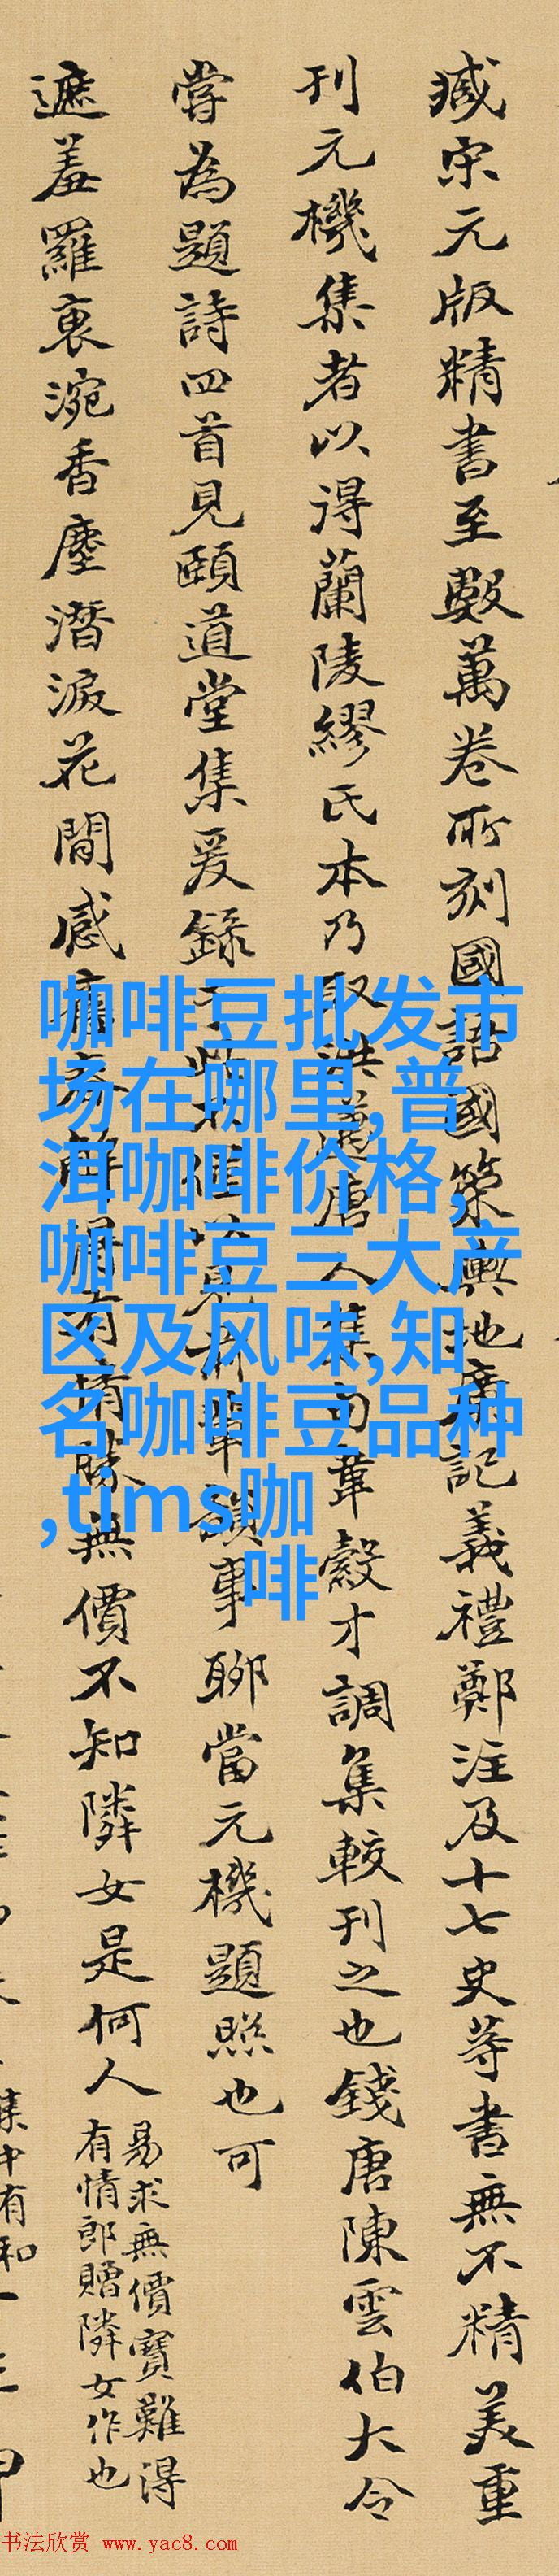 臧宋元版精書至數萬卷所刻國語國策輿地廣記義禮鄭注及十七史等書無不精美重
刊元機集者以得蘭陵繆氏本乃取洪萬唐人集句韋縠才調集較刊之也錢唐陳雲伯大令
嘗為題詩四首見頤道堂集爰錄 事聊當元機題照也可
遮羞羅裏涴香塵潛淚花間感 有情勝無價不知隣女是何人
易求無價寶難得
有情郎贈隣女作也
集中有和
咖啡豆批发市
场在哪里,普
洱咖啡价格,
咖啡豆三大产
区及风味,知
名咖啡豆品种
,tims咖
啡
书法欣赏 www.yac8.com